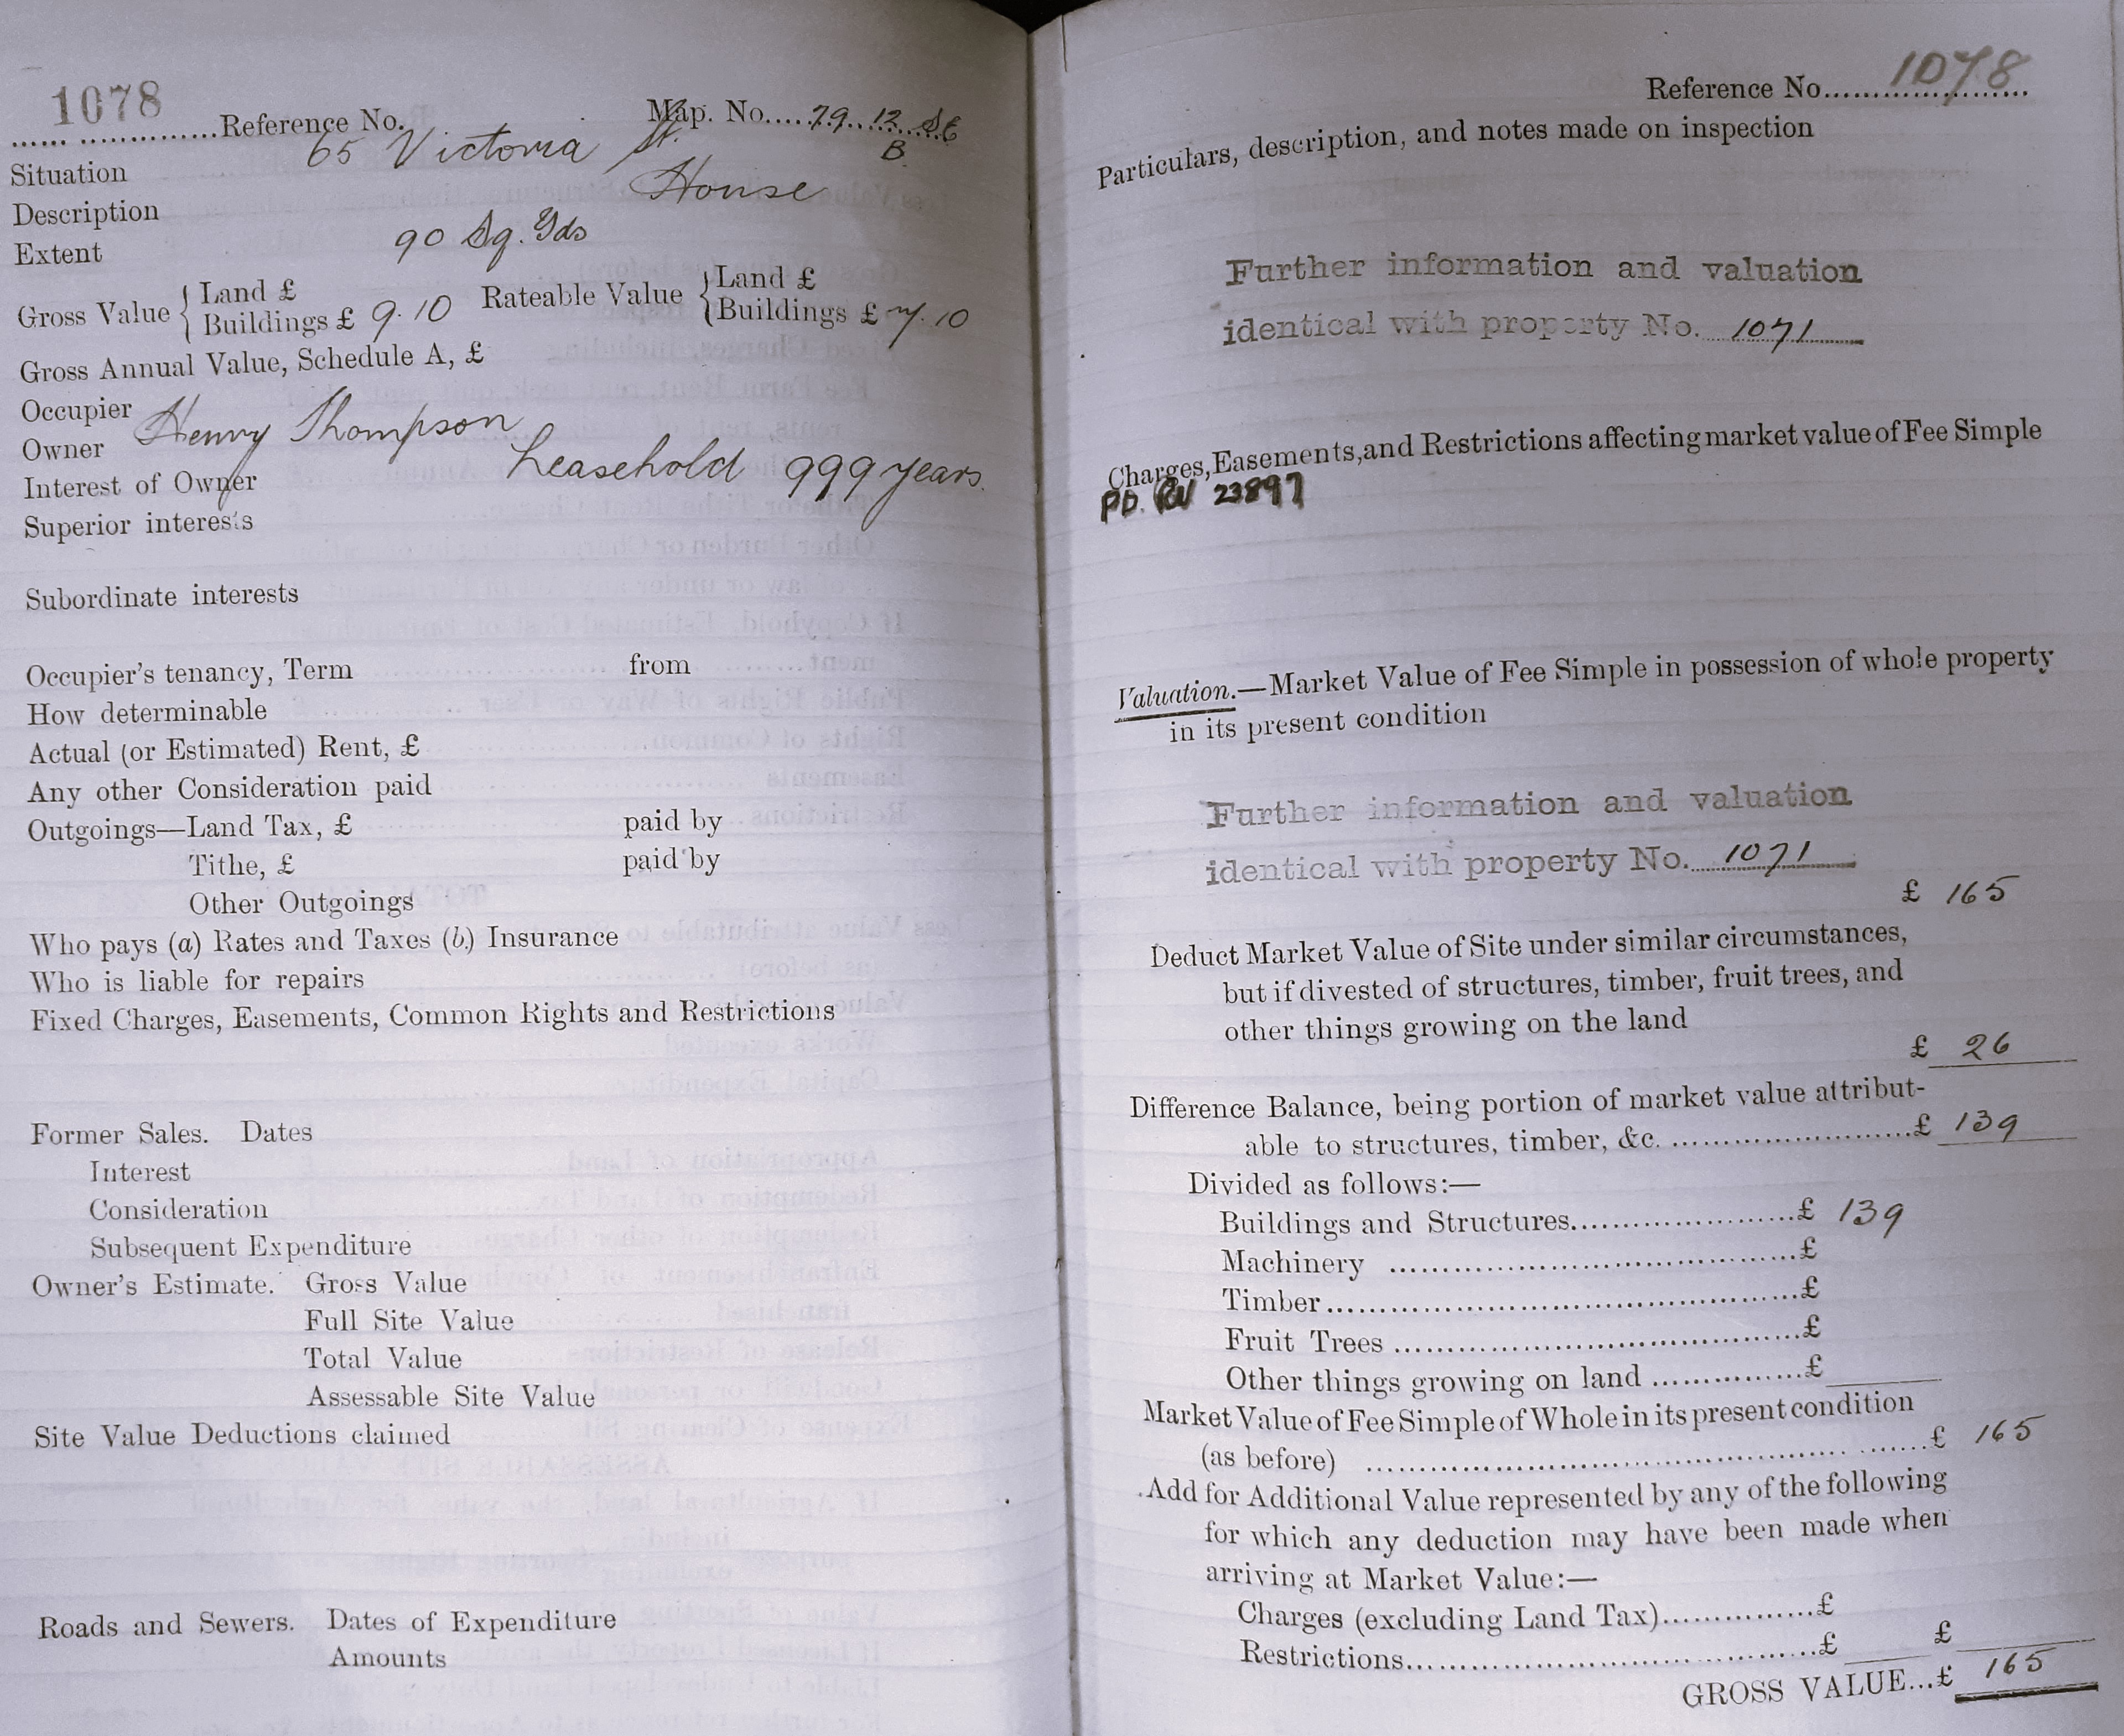 1078 Reference No. Map. No. 79. 12 SE
B.
Situation 65 Victoria St.
Description House
Extent 90 Sq. Yds
Gross Value { Land £
Buildings £ 9. 10
Rateable Value { Land £
Buildings £ 7. 10
Gross Annual Value, Schedule A, £
Occupier
Owner Henry Thompson
Interest of Owner Leasehold 999 years.
Superior interests
Subordinate interests
Occupier's tenancy, Term from
How determinable
Actual (or Estimated) Rent, £
Any other Consideration paid
Outgoings—Land Tax, £ paid by
Tithe, £ paid by
Other Outgoings
Who pays (a) Rates and Taxes (b.) Insurance
Who is liable for repairs
Fixed Charges, Easements, Common Rights and Restrictions
Former Sales. Dates
Interest
Consideration
Subsequent Expenditure
Owner's Estimate. Gross Value
Full Site Value
Total Value
Assessable Site Value
Site Value Deductions claimed
Roads and Sewers. Dates of Expenditure
Amounts
Reference No. 1078
Particulars, description, and notes made on inspection
Further information and valuation
identical with property No. 1071
Charges, Easements, and Restrictions affecting market value of Fee Simple
PD. 23897
Valuation.—Market Value of Fee Simple in possession of whole property
in its present condition
Further information and valuation
identical with property No. 1071
£ 165
Deduct Market Value of Site under similar circumstances,
but if divested of structures, timber, fruit trees, and
other things growing on the land
£ 26
Difference Balance, being portion of market value attribut-
able to structures, timber, &c. £ 139
Divided as follows:—
Buildings and Structures £ 139
Machinery £
Timber £
Fruit Trees £
Other things growing on land £
Market Value of Fee Simple of Whole in its present condition
(as before) £ 165
Add for Additional Value represented by any of the following
for which any deduction may have been made when
arriving at Market Value:—
Charges (excluding Land Tax) £
Restrictions £ £
GROSS VALUE...£ 165